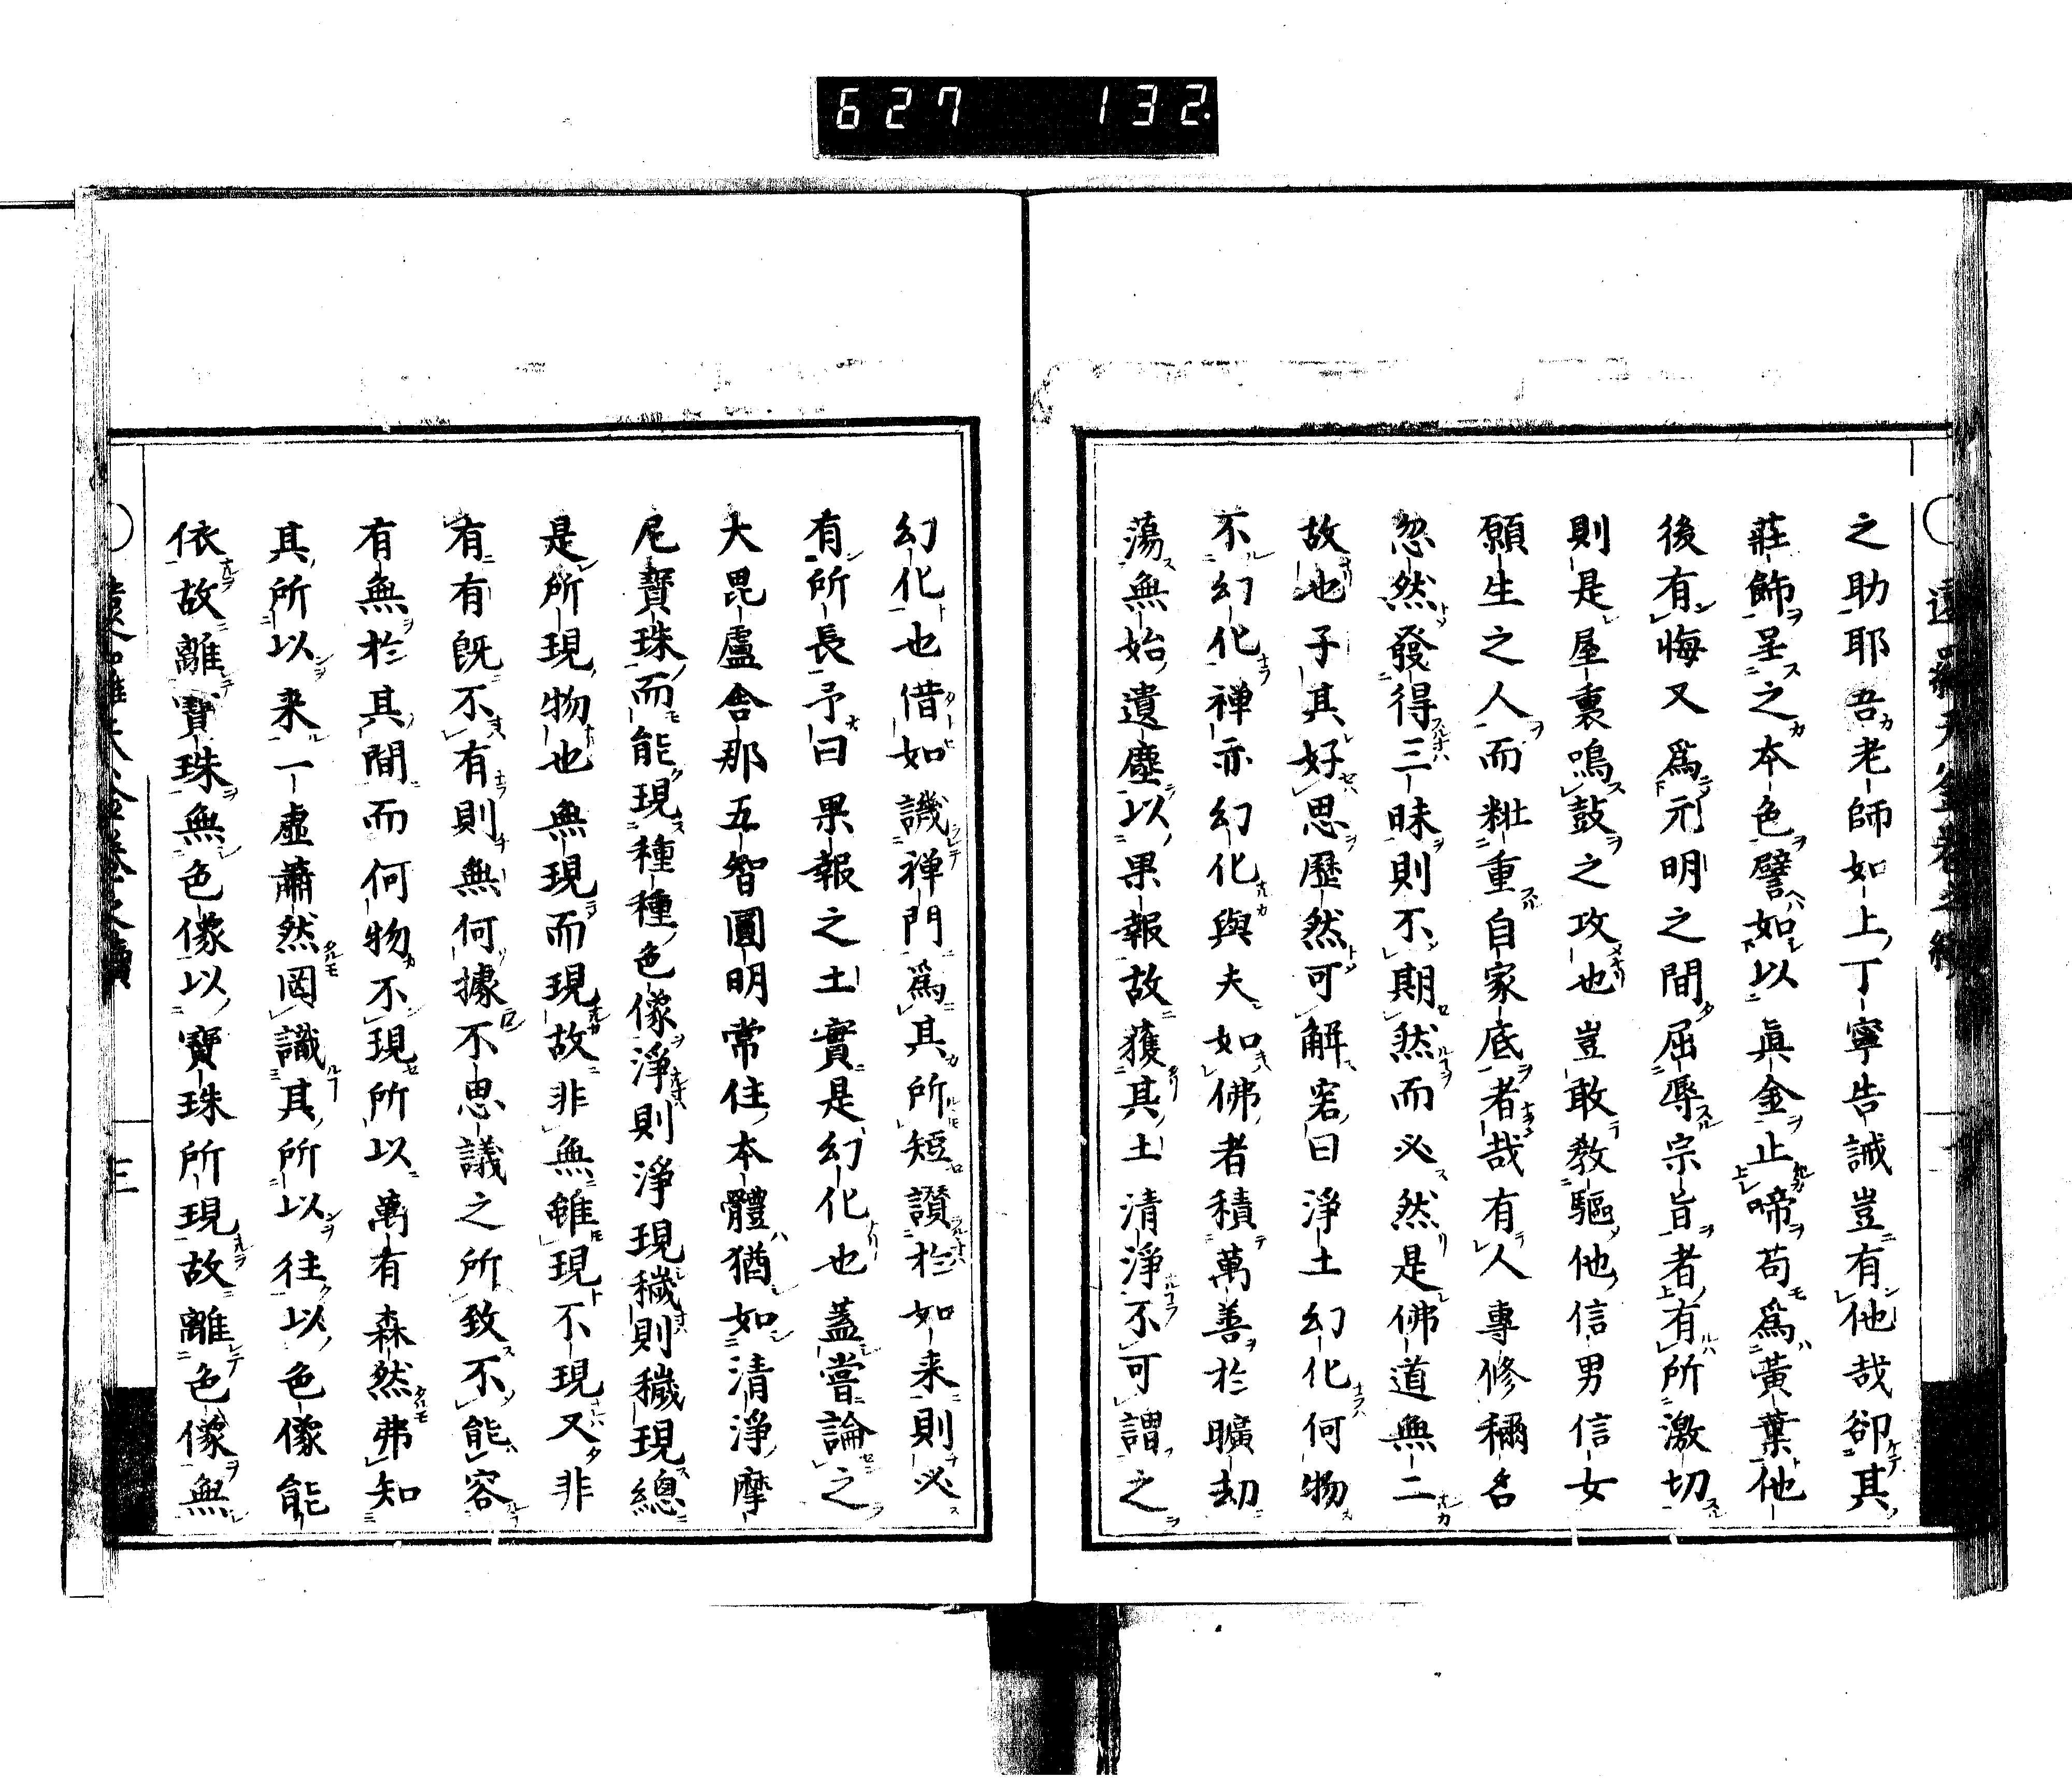 627 132.
之助耶吾老師如上丁寧告誡豈有他哉卻其
莊飾呈之本色譬如以眞金止啼苟爲黃葉他
後有悔又爲元明之間屈辱宗旨者有所激切
則是屋裏鳴鼓之攻也豈敢教驅他信男信女
願生之人而粃重自家底者哉有人專修稱名
忽然發得三昧則不期然而必然是佛道無二
故也子其好思歷然可解客曰淨土幻化何物
不幻化禅亦幻化與夫如佛者積萬善於曠劫
蕩無始遺塵以果報故獲其土清淨不可謂之
幻化也借如譏禅門爲其所短讃於如来則必
有所長予曰果報之土實是幻化也蓋嘗論之
大毘盧舎那五智圓明常住本體猶如清淨摩
尼寶珠而能現種種色像淨則淨現穢則穢現總
是所現物也無現而現故非無雖現不現又非
有有既不有則無何據不思議之所致不能容
有無於其間而何物不現所以萬有森然弗知
其所以来一虚蕭然罔識其所以往以色像能
依故離寶珠無色像以寶珠所現故離色像無
三